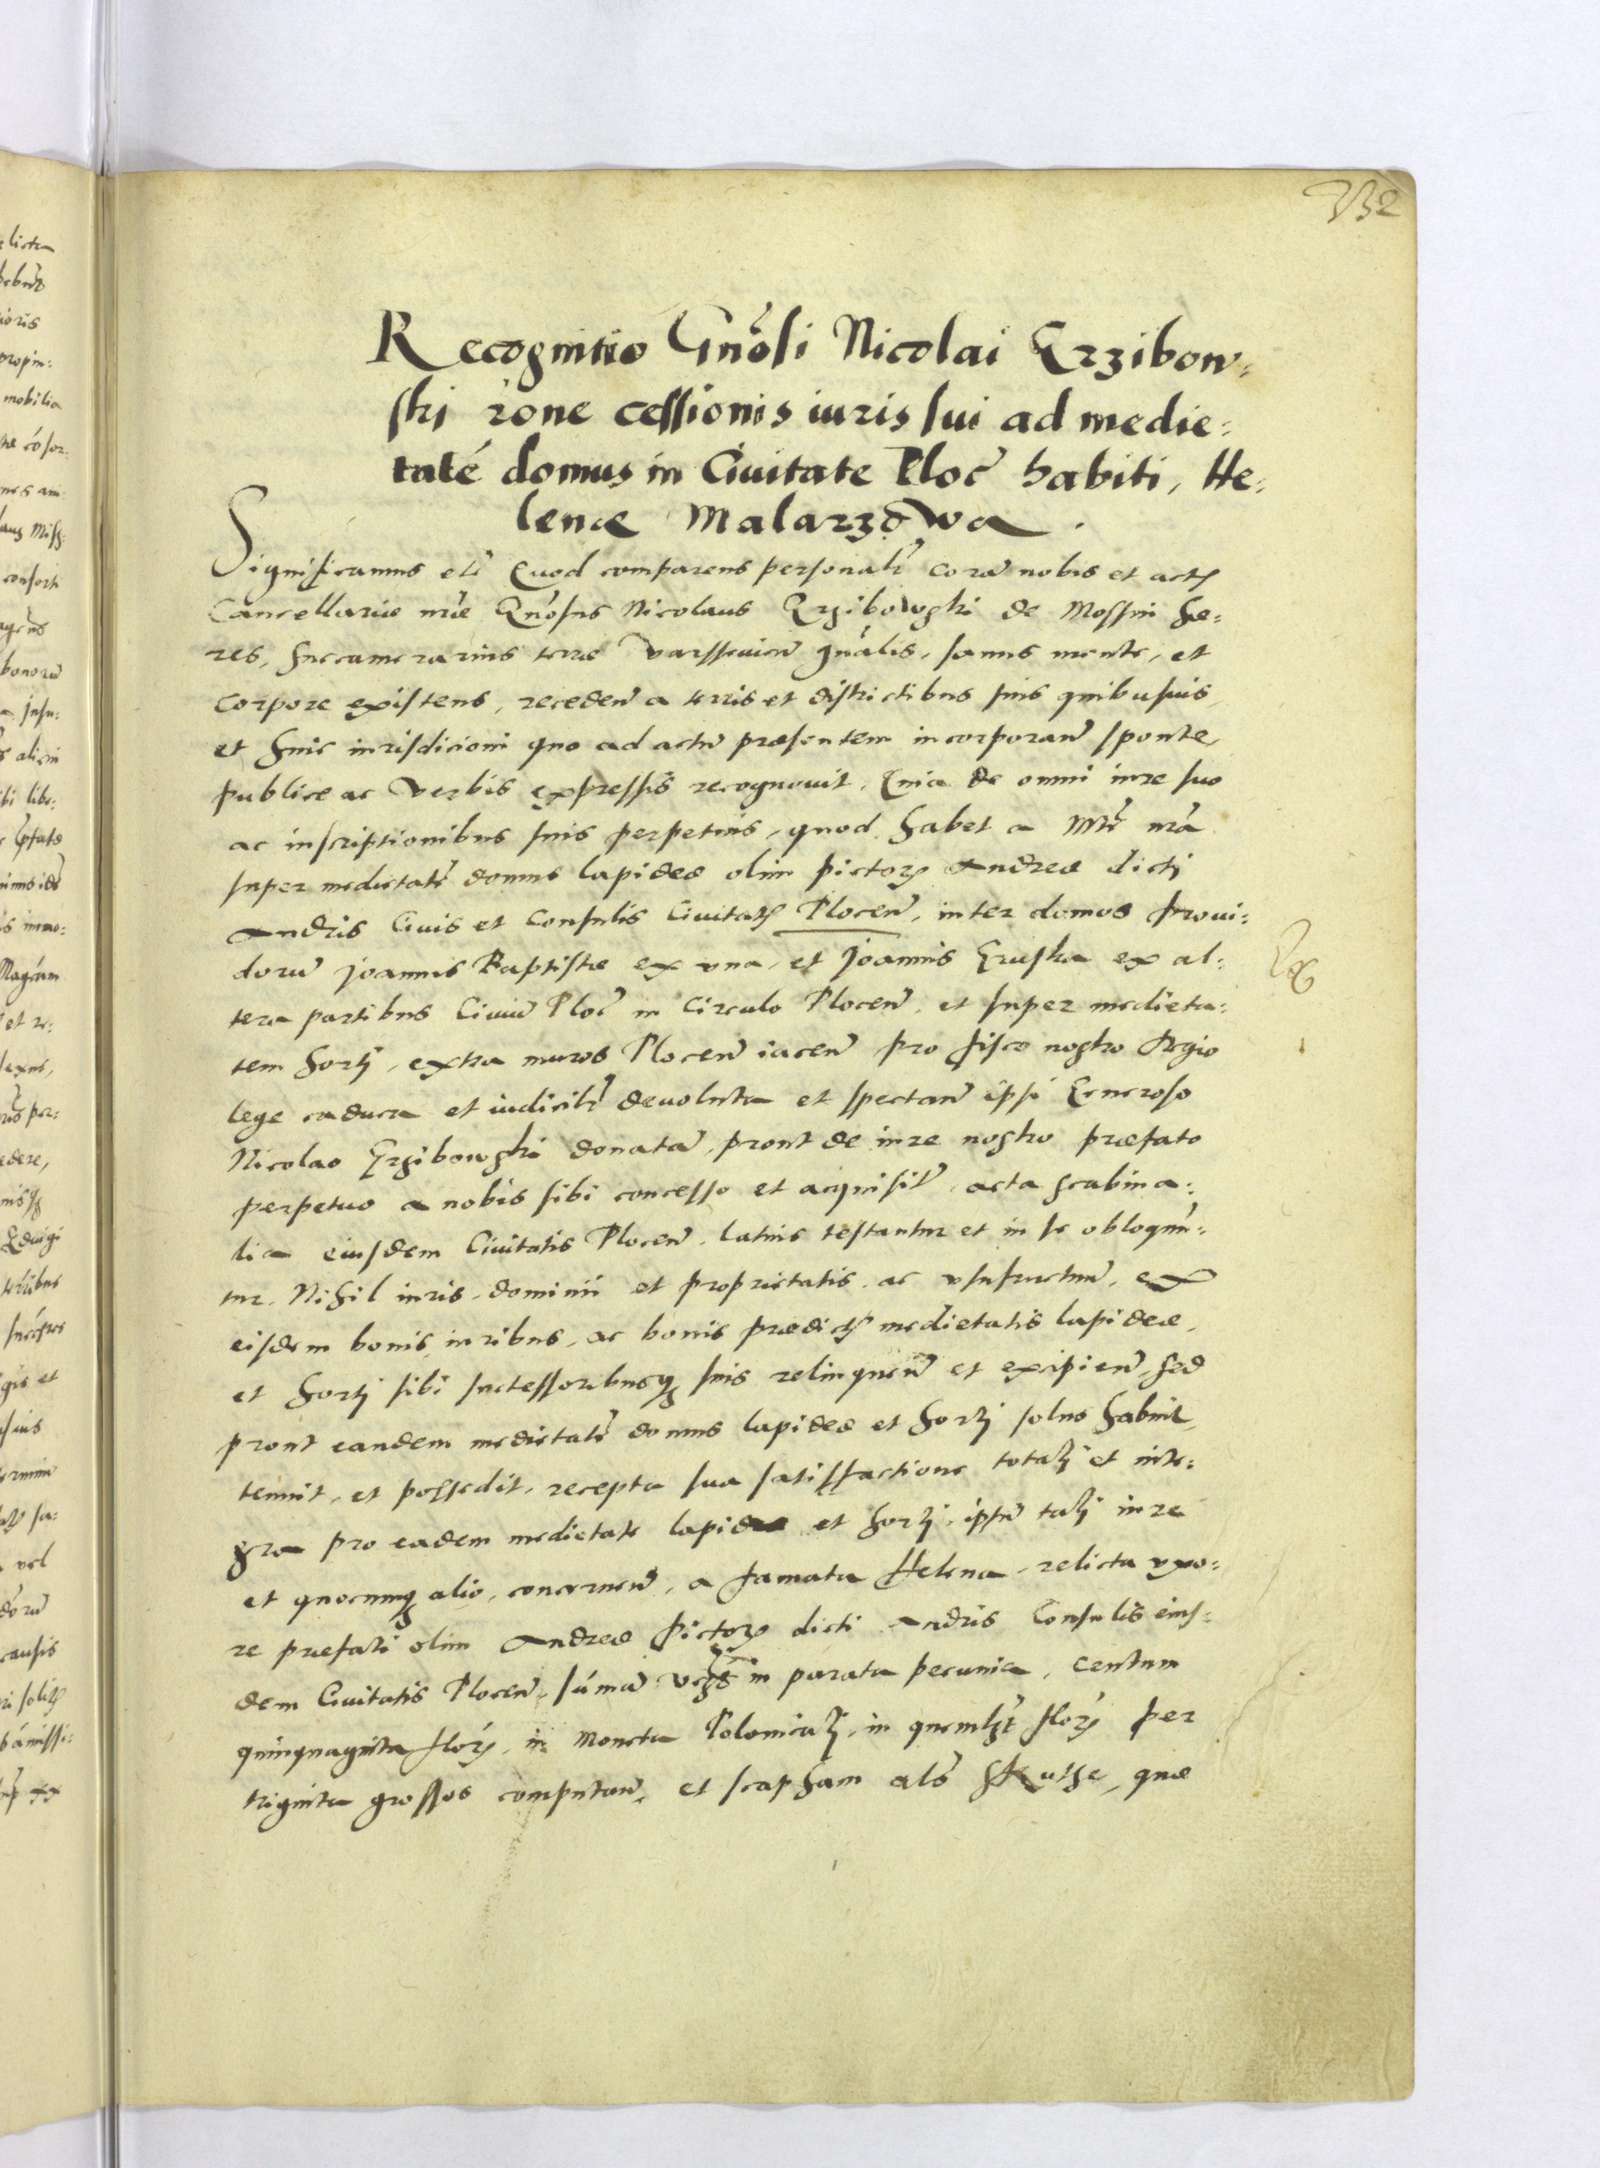 732
Recognitio Gnosi Nicolai Grzibow-
ski rone cessionis iuris sui ad medie-
taté domus in Civitate Ploc habiti, He-
lenæ Malarzowa.
Significamus etc Quod comparens personalr coram nobis et actis
Cancellariæ nræ Gnosus Nicolaus Grzibowski de Mossin hæ-
res, succamerarius terræ Varssevien gnalis, sanus mente, et
corpore existens, recedens a terris et districtibus suis quibusuis,
et huic iurisdicioni quo ad actum præsentem incorporans sponte,
publice ac verbis expressis recognovit. Quia de omni iure suo
ac inscriptionibus suis perpetuis, quod habet a Mte nra
super medietate domus lapideæ olim pictoris Andreæ dicti
Andris Civis et Consulis Civitatis Plocen, inter domos provi-
dorum Joannis Baptistæ ex vna, et Joannis Gruska ex al-
tera partibus Civium Ploc in Circulo Plocen, et super medieta-
tem horti, extra muros Plocen iacen pro fisco nostro Regio
lege caduca et iudicialr devoluta et spectan ipsi Generoso
Nicolao Grzibowski donatam, prout de iure nostro præfato
perpetuo a nobis sibi concesso et acquisito acta scabina-
lia eiusdem Civitatis Plocen, latius testantur et in se obloqun-
tur. Nihil iuris, dominii et proprietatis, ac vsufructum, ex
eisdem bonis, iuribus, ac bonis prædictis medietatis lapideæ,
et horti sibi successoribusq suis relinquen et excipien, sed
prout eandem medietate domus lapideæ et horti solus habuit,
tenuit, et possedit, recepta sua satisffactione totali et inte-
gra pro eadem medietate lapideæ et horti, ipsum tali iure
et quocunq alio, concernen, a famata Helena, relicta vxo-
re præfati olim Andreæ Pictoris dicti Andris Consulis eius-
dem Civitatis Plocen, súmam in parata pecunia, centum
quinquaginta flor, in Moneta Polonicali, in quemlzt flor per
triginta grossos computan, et scapham als skuthe, quæ